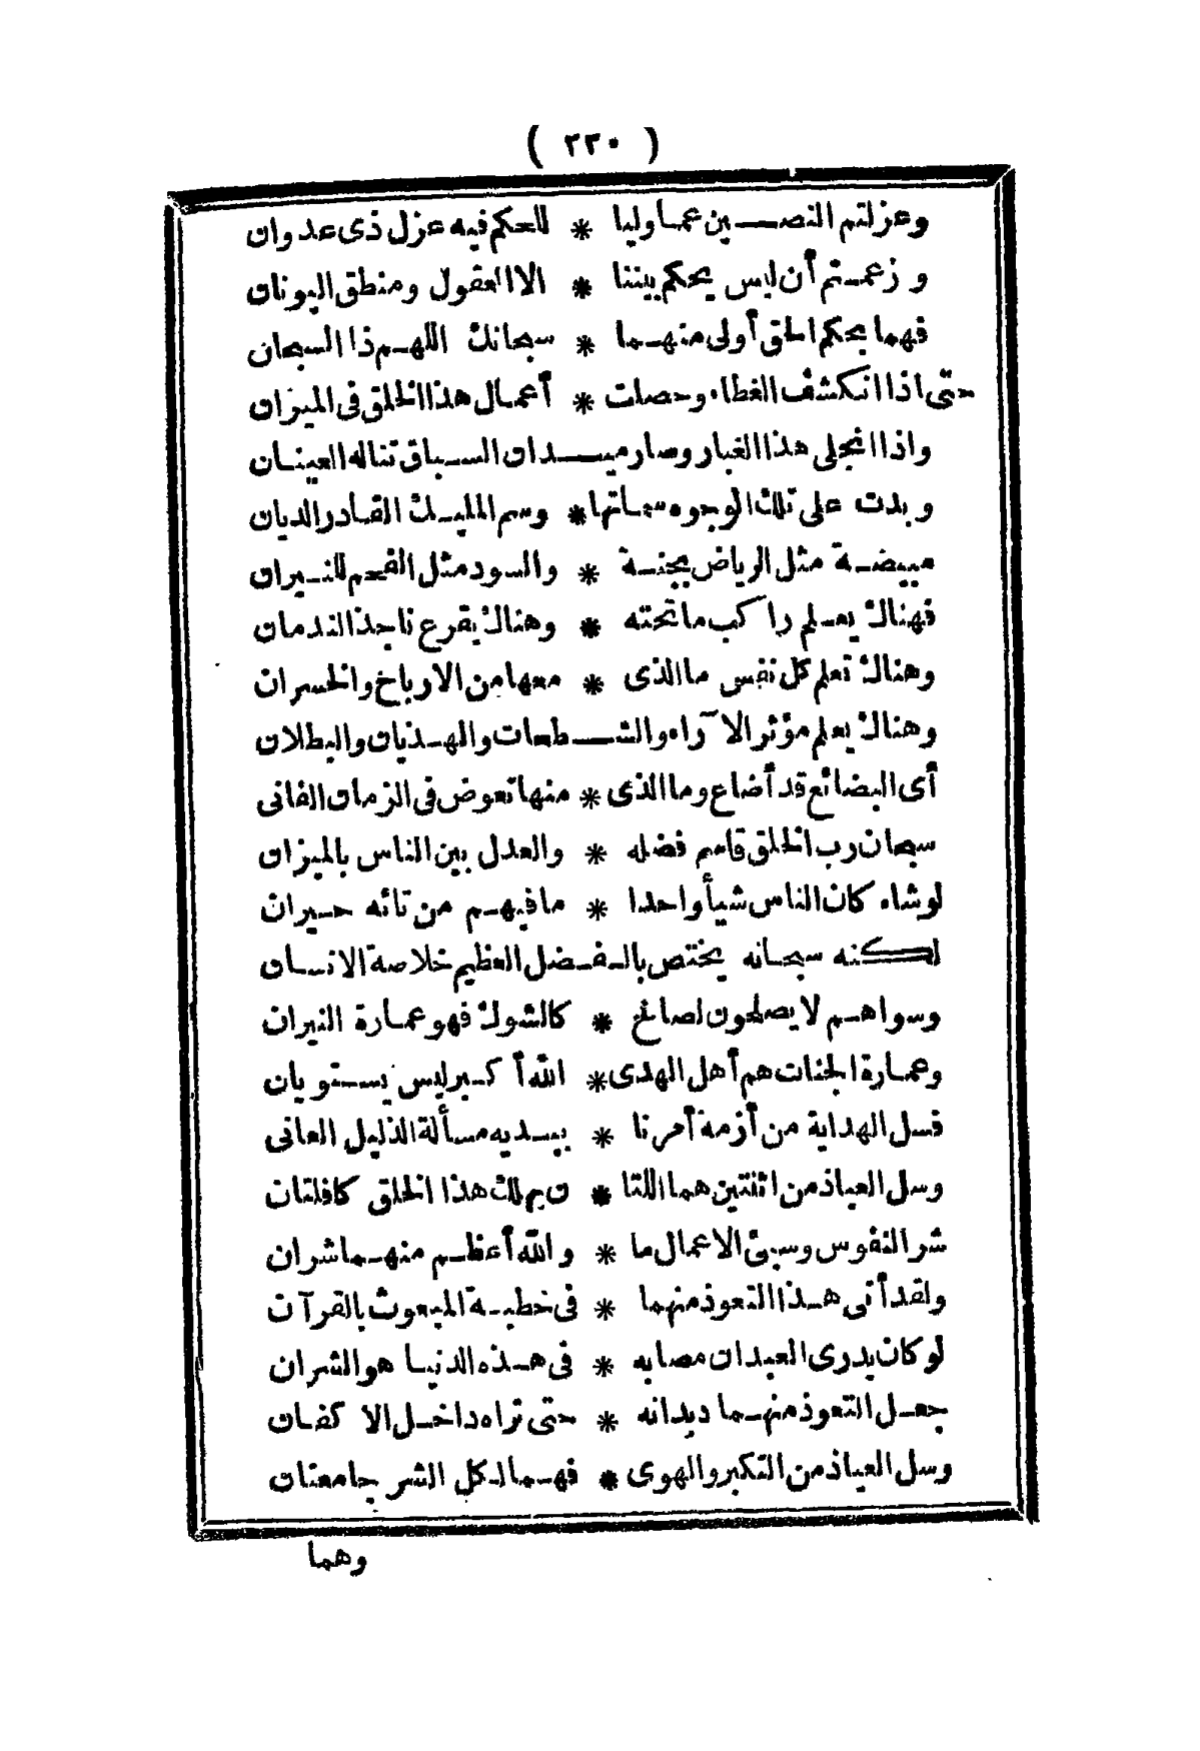 ( ٢٣٠ )
وعزلتم النصين عما وليا * للحكم فيه عزل ذى عدوان
وزعمتم أن ليس يحكم بيننا * الا العقول ومنطق اليونان
فهما بحكم الحق أولى منهما * سبحانك اللهم ذا السبحان
حتى اذا انكشف الغطاء وحصلت * أعمال هذا الخلق فى الميزان
واذا انجلى هذا الغبار وصار ميدان السباق تناله العينان
وبدت على تلك الوجوه سماتها * وسم المليك القادر الديان
مبيضة مثل الرياض بجنة * والسود مثل الفحم للنيران
فهناك يعلم راكب ما تحته * وهناك يقرع ناجذ الندمان
وهناك تعلم كل نفس ما الذى * معها من الارباح والخسران
وهناك يعلم مؤثر الآراء والشطحات والهذيان والبطلان
أى البضائع قد أضاع وما الذى * منها تعوض فى الزمان الفانى
سبحان رب الخلق قاسم فضله * والعدل بين الناس بالميزان
لو شاء كان الناس شيأ واحدا * ما فيهم من تائه حيران
لكنه سبحانه يختص بالفضل العظيم خلاصة الانسان
وسواهم لا يصلحون لصالح * كالشوك فهو عمارة النيران
وعمارة الجنات هم أهل الهدى * الله أكبر ليس يستويان
فسل الهداية من أزمة أمرنا * بيديه مسألة الذليل العانى
وسل العياذ من اثنتين هما اللتا * ن بهلك هذا الخلق كافلتان
شر النفوس وسيئ الاعمال ما * والله أعظم منهما شران
ولقد أتى هذا التعوذ منهما * فى خطبة المبعوث بالقرآن
لو كان يدرى العبد ان مصابه * فى هذه الدنيا هو الشران
جعل التعوذ منهما ديدانه * حتى تراه داخل الاكفان
وسل العياذ من التكبر والهوى * فهما لكل الشر جامعتان
وهما